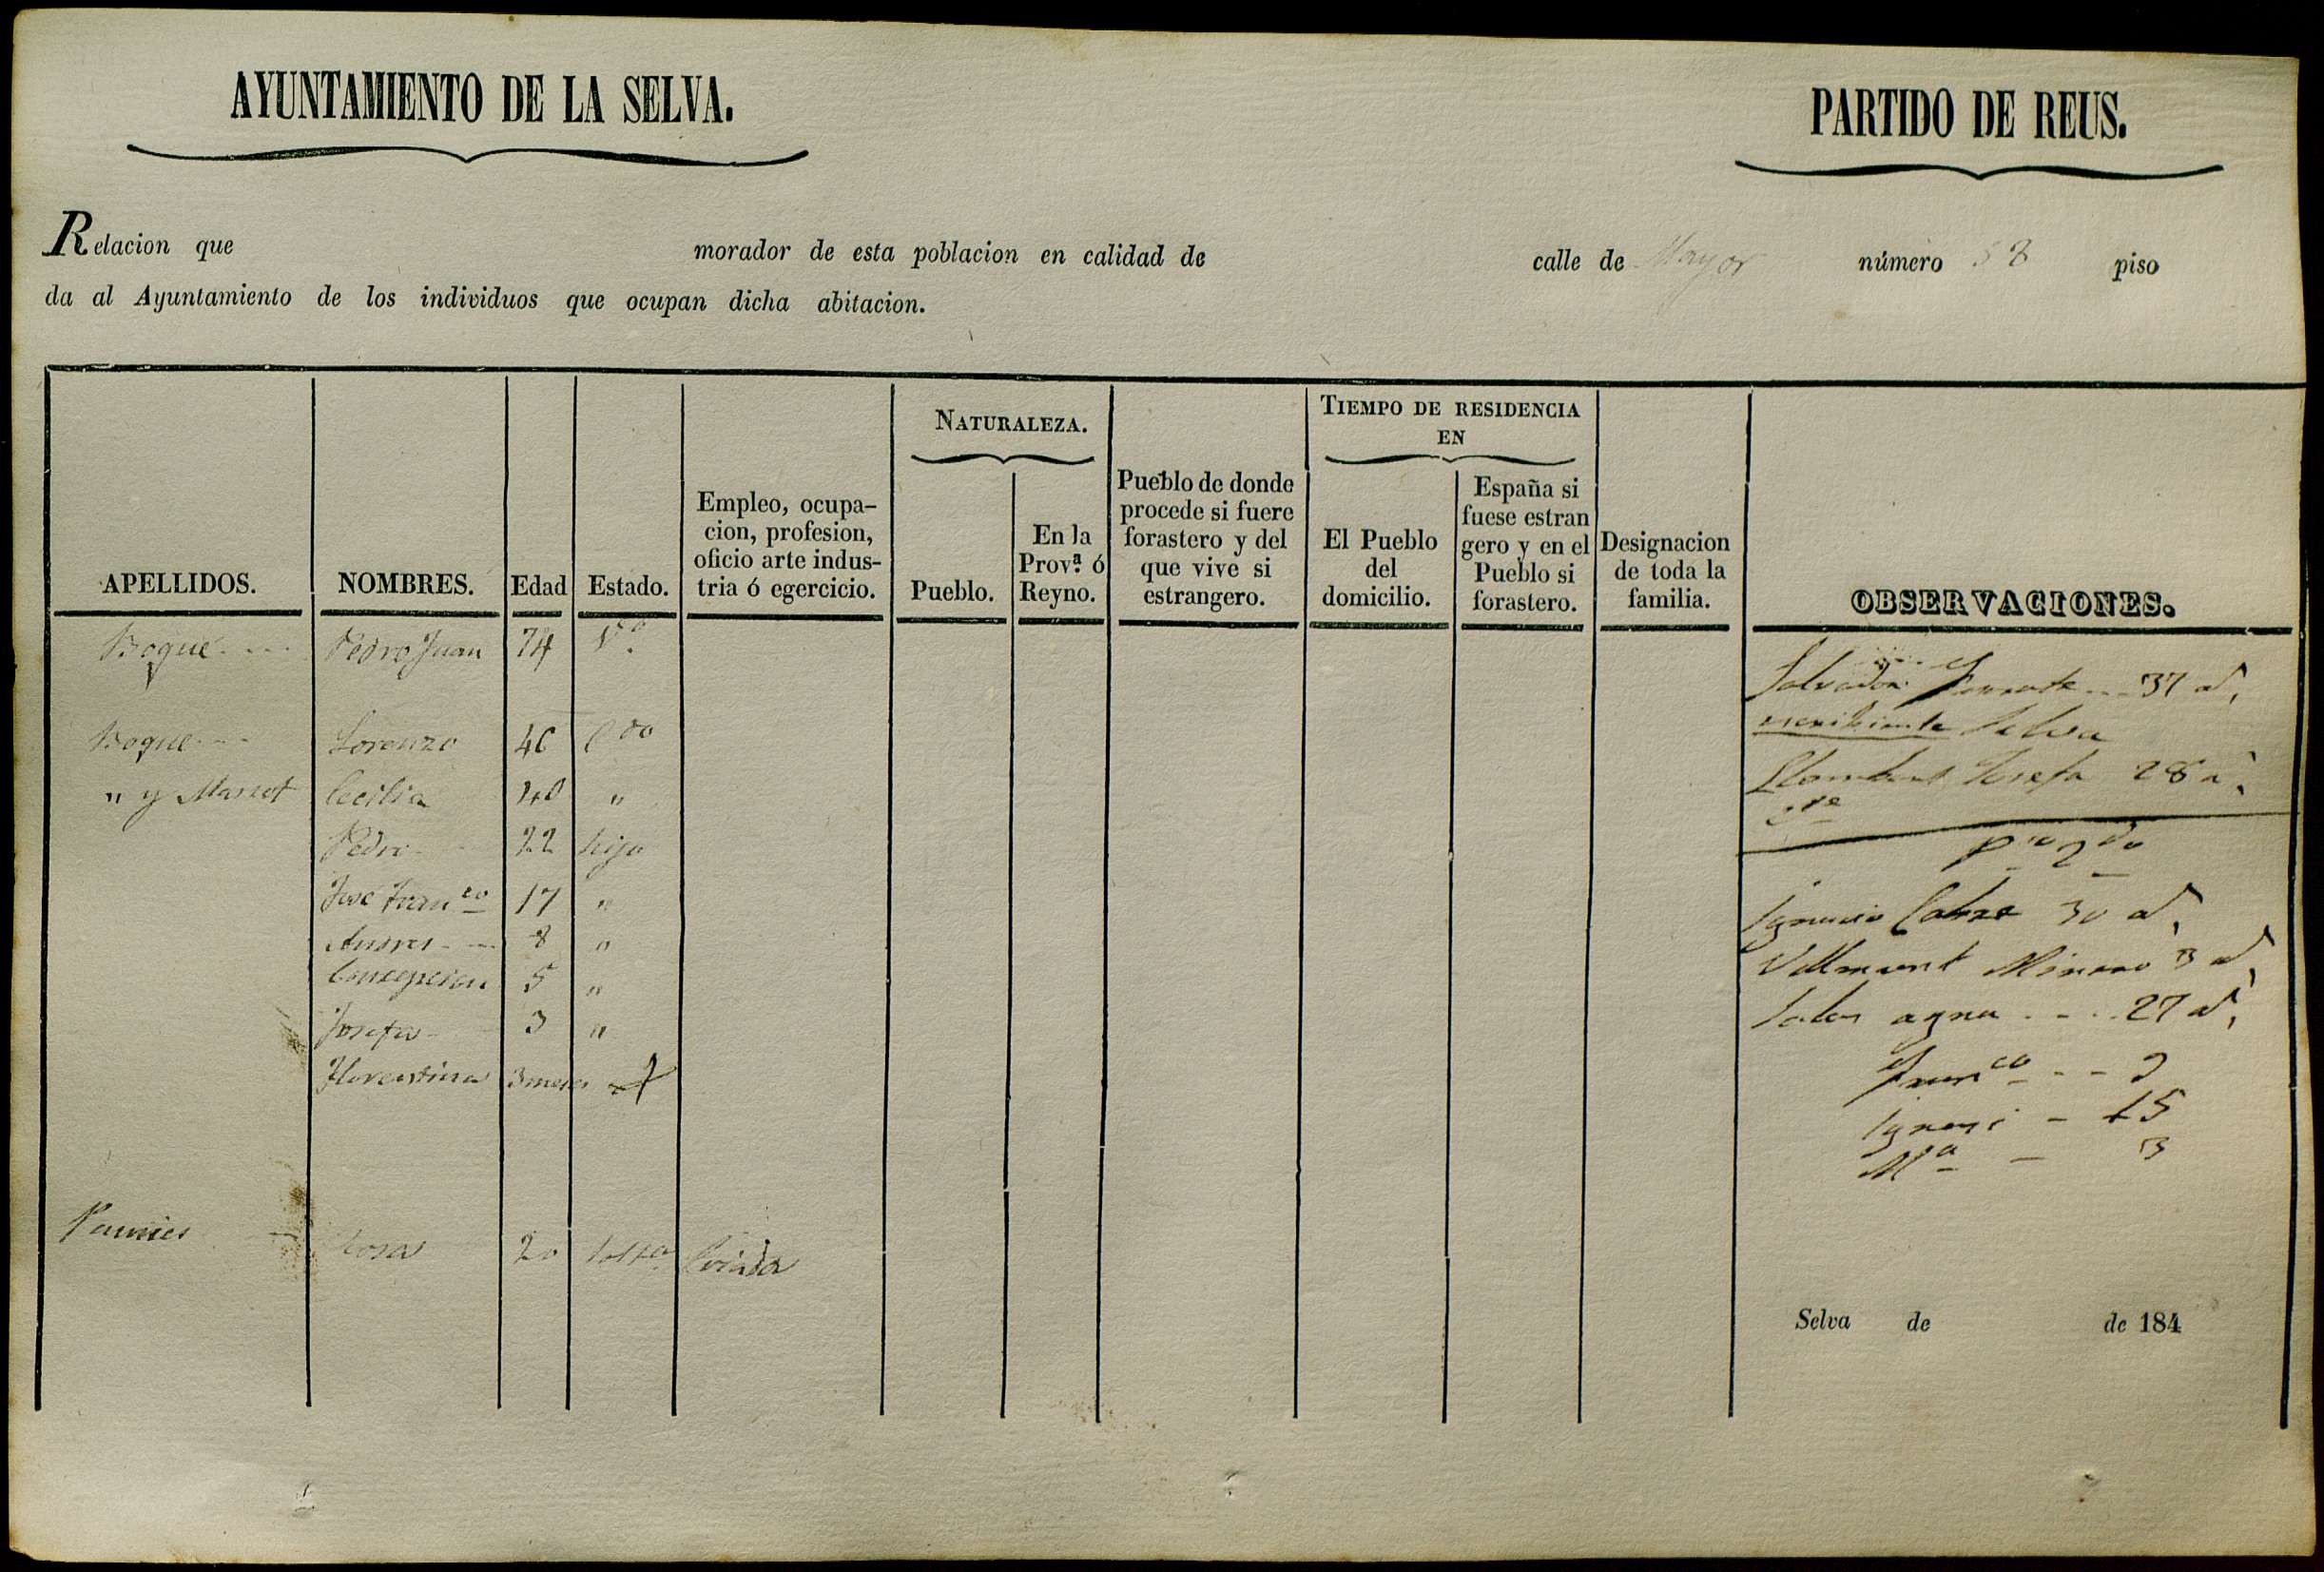 AYUNTAMIENTO DE LA SELVA.
PARTIDO DE REUS.
Relacion que morador de esta poblacion en calidad de calle de Mayor número 58 piso
da al Ayuntamiento de los individuos que ocupan dicha abitacion.
APELLIDOS.
NOMBRES.
Edad
Estado.
Empleo, ocupa-
cion, profesion,
oficio arte indus-
tria ó egercicio.
NATURALEZA.
Pueblo.
En la
Prov.ª ó
Reyno.
Pueblo de donde
procede si fuere
forastero y del
que vive si
estrangero.
TIEMPO DE RESIDENCIA
EN
El Pueblo
del
domicilio.
España si
fuese estran
gero y en el
Pueblo si
forastero.
Designacion
de toda la
familia.
OBSERVACIONES.
Boqué Pedro Juan 74 V.º
Boqué Lorenzo 46 C.do
" y Masset Cecilia 40 "
Pedro 22 hijo
José Fran.co 17 "
Andres 8 "
Concepcion 5 "
Josefa 3 "
Florentina 3 meses
Pamies Rosa 20 solt.a Criada
Salvador 37 a.
escribiente Selva
Josefa 28 a.
P.so 2.do
Ignacio Cabré 30 a.
Vellmunt 3 a.
27 a.
Fran.co - - 2
Ignasi - 15
M.a - 3
Selva de de 184